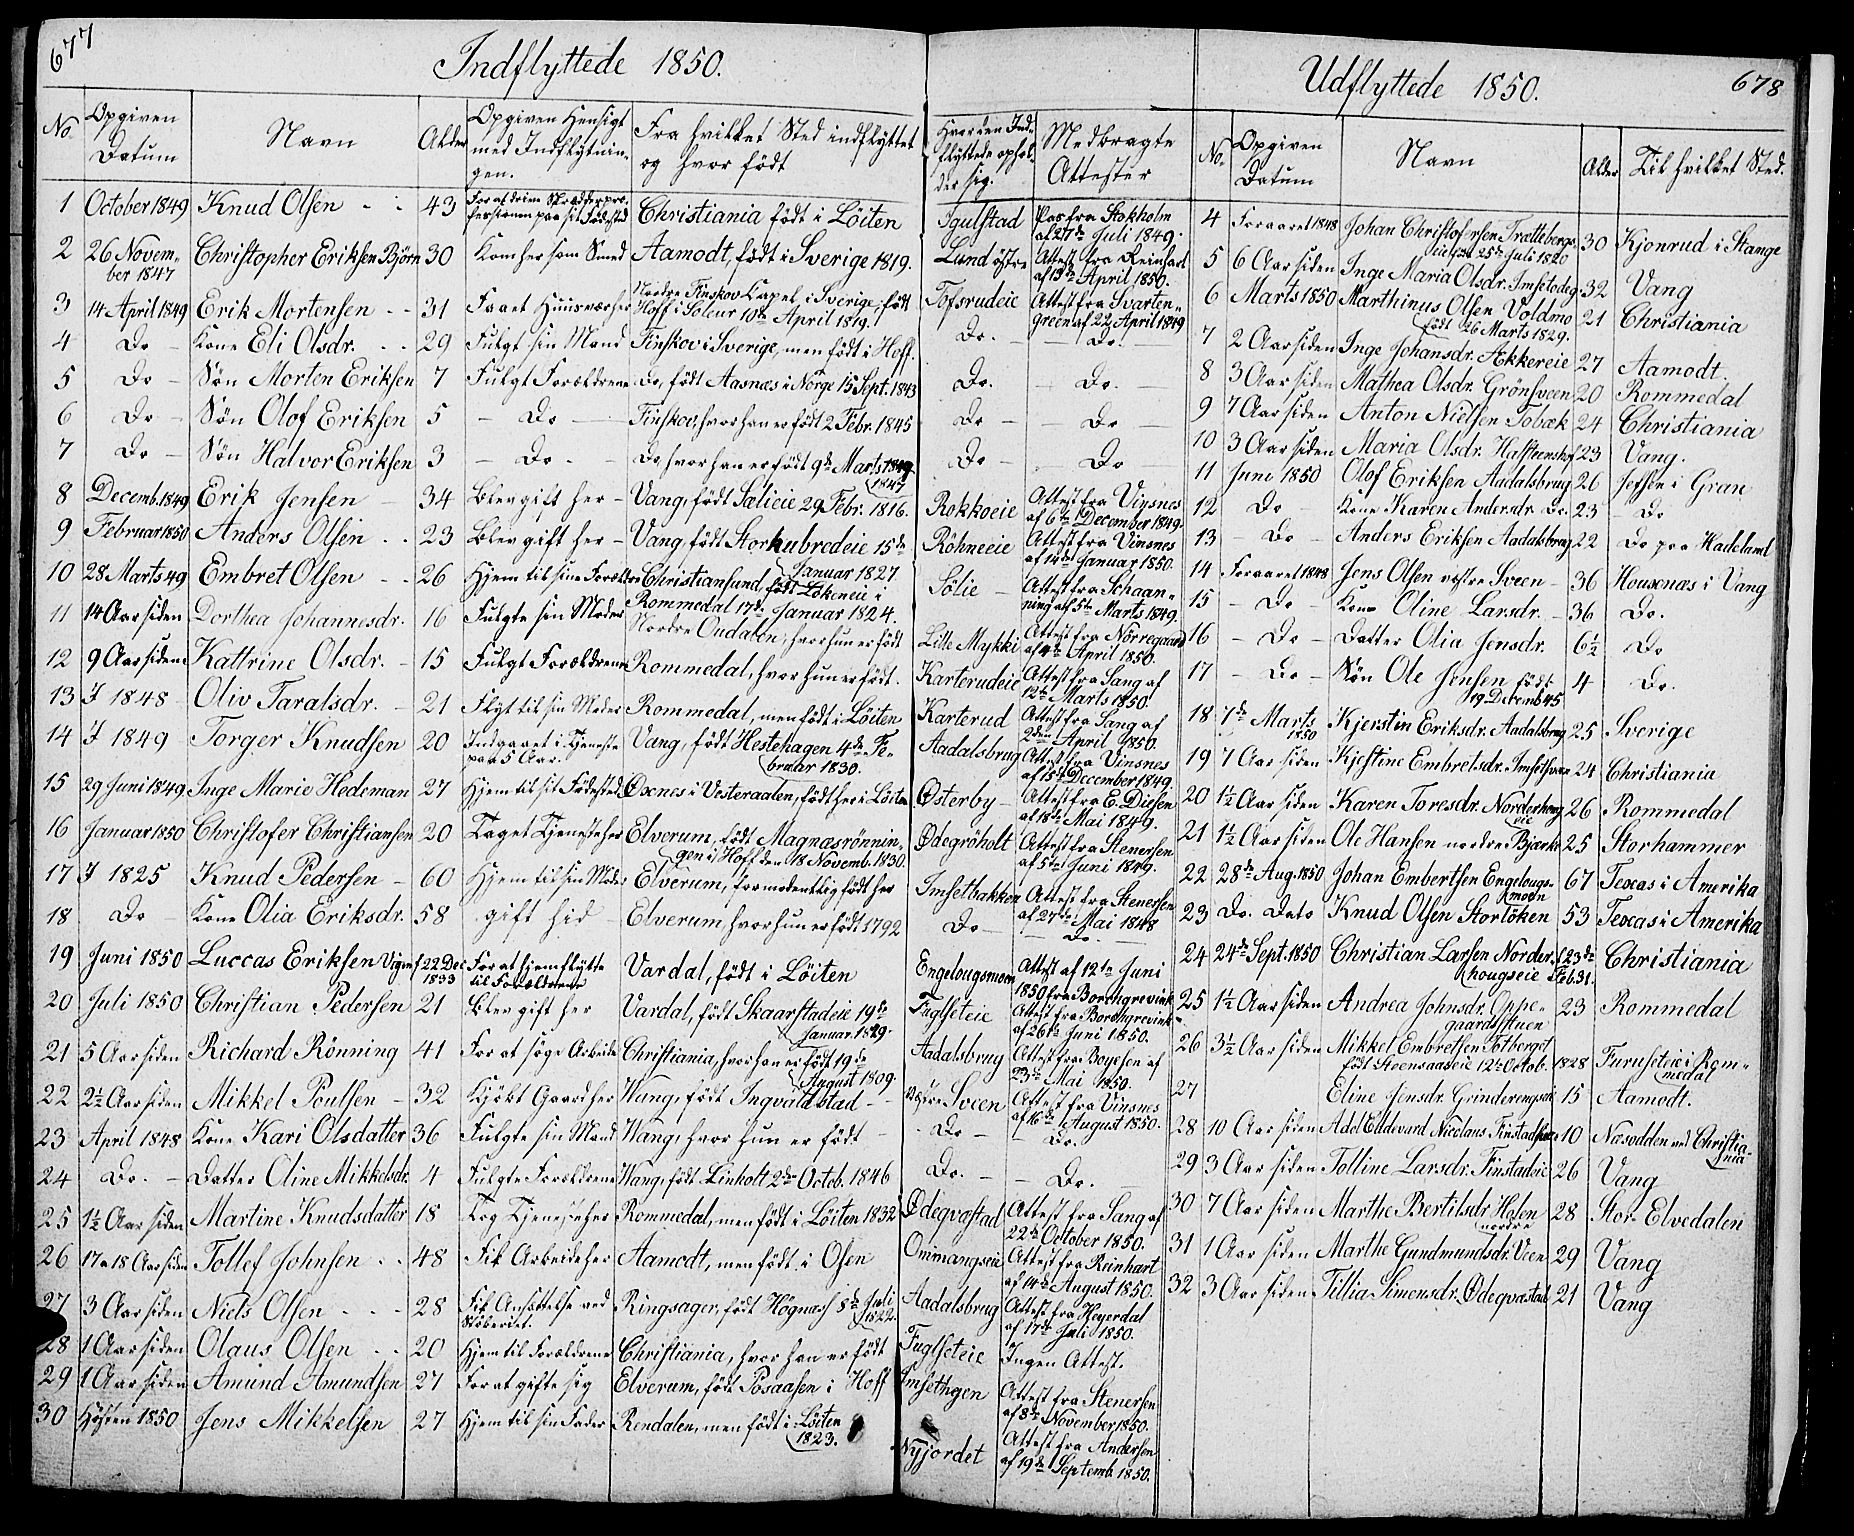 677
Indflyttede 1850.
No. Opgiven Datum Navn Alder Opgiven Hensigt med Indflytningen. Fra hvilket Sted indflyttet og hvor født Hvor den Indflyttede opholder sig. Medbragte Attester
1 October 1849 Knud Olsen 43 For at drive Skrædderprofessionen paa sit Fødested Christiania født i Löiten Igulstad Pas fra Stokholm af 27de Juli 1849.
2 26 November 1847 Christopher Eriksen Björn 30 Kom her som Smed Aamodt, født i Sverige 1819. Lund östre Attest fra Reinhart af 13de April 1850.
3 14 April 1849 Erik Mortensen 31 Faaet Huusvær her Nordre Finskov Capel i Sverige, født Hoff i Soleur 10de April 1819. Tofsrudeie Attest fra Svartengreen af 22 April 1849
4 Do Kone Eli Olsdr. 29 Fulgt sin Mand Finskov i Sverige, men født i Hoff. Do. Do.
5 Do Søn Morten Eriksen 7 Fulgt Forældrene Do, født Aasnæs i Norge 15 Sept. 1843 Do. Do.
6 Do Søn Olof Eriksen 5 Do Finskov, hvor han er født 2 Febr. 1845 Do Do
7 Do Søn Halvor Eriksen 3 Do Do hvor han er født 9de Marts 1849 1847 Do Do
8 Decemb. 1849 Erik Jensen 34 Blev gift her Vang, født Sælieie 29 Febr. 1816. Rokkoeie Attest fra Vinsnes af 6te December 1849.
9 Februar 1850 Anders Olsen 23 Blev gift her Vang, født Storhubredeie 15de Januar 1827. Röhneeie Attest fra Vinsnes af 14de Januar 1850.
10 28 Marts 49 Embret Olsen 26 Hjem til sine Forældre Christiansund, født Lökeneie i Rommedal 17de Januar 1824. Sölie Attest fra Schaanning af 5te Marts 1849.
11 14 Aar siden Dorthea Johannesdr. 16 Fulgte sin Moder Nordre Oudalen, hvor hun er født Lille Mykki Attest fra Nörregaard af 4de April 1850.
12 9 Aar siden Kattrine Olsdr. 15 Fulgt Forældrene Rommedal, hvor hun er født. Karterudeie Attest fra Sang af 12te Marts 1850.
13 I 1848 Oliv Taralsdr. 21 Flyt til sin Moder Rommedal, men født i Löiten Karterud Attest fra Sang af 2den April 1850.
14 I 1849 Torger Knudsen 20 Indgaaet i Tjeneste paa 5 Aar. Vang, født Hestehagen 4de Februar 1830. Aadalsbrug Attest fra Vinsnes af 15de December 1849.
15 29 Juni 1849 Inge Marie Hedeman 27 Hjem til sit Fødested Öxnes i Vesteraalen, født her i Löiten Østerby Attest fra E. Diesen af 18de Mai 1849.
16 Januar 1850 Christofer Christiansen 20 Taget Tjeneste her Elverum, født Magnæsrönningen i Hoff den 18 Novemb. 1830. Ødegröholt Attest fra Stenersen af 5te Juni 1849.
17 I 1825 Knud Pedersen 60 Hjem til sin Moder Elverum, formodentlig født her Imsetbakken Attest fra Stenersen af 27de Mai 1848
18 Do Kone Olia Eriksdr. 58 gift hid Elverum, hvor hun er født 1792 Do Do
19 Juni 1850 Luccas Eriksen f 22 Dec 1833 For at hjemflytte til Forældrene Vardal, født i Löiten Engelougsmoen Attest af 12te Juni 1850 fra Borchgrevink
20 Juli 1850 Christian Pedersen 21 Blev gift her Vardal, født Skaarstadeie 19de Januar 1829. Fuglseteie Attest fra Borchgrevink af 26te Juni 1850.
21 5 Aar siden Richard Rönning 41 For at søge Arbeide Christiania, hvor han er født 19de August 1809. Aadalsbrug Attest fra Boyesen af 23de Mai 1850.
22 2½ Aar siden Mikkel Poulsen 32 Kjøbt Gaard her Wang, født Ingvaldstad Vestre Sveen Attest fra Vinsnes af 16de August 1850.
23 April 1848 Kone Kari Olsdatter 36 Fulgte sin Mand Wang, hvor hun er født Do Do.
24 Do. Datter Oline Mikkelsdr. 4 Fulgte Forældrene Wang, født Linholt 2de Octob. 1846 Do. Do.
25 1½ Aar siden Martine Knudsdatter 18 Tog Tjeneste her Rommedal, men født i Löiten 1832 Ødeqvastad Attest fra Sang af 22de October 1850.
26 17 a 18 Aar siden Tollef Johnsen 48 Fik Arbeide her Aamodt, men født i Osen Ommangseie Attest fra Reinhart af 14de August 1850.
27 3 Aar siden Niels Olsen 28 Fik Ansættelse ved Støberiet. Ringsager, født Högnæs 8de Juli 1822. Aadalsbrug Attest fra Heyerdal af 17de Juli 1850.
28 1 Aar siden Olaus Olsen 20 Hjem til Forældrene Christiania, hvor han er født Fuglseteie Ingen Attest.
29 1 Aar siden Amund Amundsen 27 For at gifte sig Elverum, født Posaasen i Hoff Imsethgen Attest fra Stenersen af 8de November 1850.
30 Høsten 1850 Jens Mikkelsen 27 Hjem til sin Fader Rendalen, men født i Löiten 1823. Nyjordet Attest fra Andersen af 19de Septemb. 1850.
Udflyttede 1850.
678
No. Opgiven Datum Navn Alder Til hvilket Sted.
4 Foraaret 1848 Johan Christofersen Trættebergs 25de Juli 1820 30 Kjonrud i Stange
5 6 Aar siden Inge Maria Olsdr. Imsetodeg 32 Vang
6 Marts 1850 Marthinus Olsen Voldmo født 26 Marts 1829. 21 Christiania
7 2 Aar siden Inge Johansdr. Akkereie 27 Aamodt.
8 3 Aar siden Mathea Olsdr. Grönsveen 20 Rommedal
9 7 Aar siden Anton Nielsen Tobæk 24 Christiania
10 3 Aar siden Maria Olsdr. Hafsteenshof 23 Vang.
11 Juni 1850 Olof Eriksen Aadalsbrug 26 Jefsen i Gran
12 Do Kone Karen Andersdr. Do. 23 Do
13 Do Anders Eriksen Aadalsbrug 22 Do paa Hadeland
14 Foraaret 1848 Jens Olsen vestre Sveen 36 Housenæs i Vang
15 Do Kone Oline Larsdr. 36 Do.
16 Do Datter Olia Jensdr. 6½ Do
17 Do Søn Ole Jensen født 19 Decemb 45 4 Do.
18 7de Marts 1850 Kjerstin Eriksdr. Aadalsbrug 25 Sverige
19 7 Aar siden Kjestine Embretsdr. Imsetsveen 24 Christiania
20 1½ Aar siden Karen Toresdr. Norderhougeie 26 Rommedal
21 1½ Aar siden Ole Hansen nordre Bjærke 25 Storhammer
22 28de Aug. 1850 Johan Embertsen Engelougsmoen 67 Texas i Amerika
23 Do. Dato Knud Olsen Storlöken 53 Texas i Amerika
24 24de Sept. 1850 Christian Larsen Norderhougseie f 23de Feb. 31. Christiania
25 1½ Aar siden Andrea Johnsdr. Oppegaardsstuen 23 Rommedal
26 3½ Aar siden Mikkel Embretsen Totberget født Steensaaseie 12te Octob. 1828 Furuseteie i Rommedal
27 Eline Jensdr. Grinderengsdr 15 Aamodt.
28 10 Aar siden Adel Eddevard Nicolaus Finstadsen 10 Næsodden ved Christiania
29 3 Aar siden Tolline Larsdr. Finstadeie 26 Vang
30 7 Aar siden Marthe Bertilsdr Holen nordre 28 Stor-Elvedalen
31 1 Aar siden Marthe Gundmundsdr. Veen 29 Vang
32 3 Aar siden Tillia Simensdr. Ødeqvæstad 21 Vang